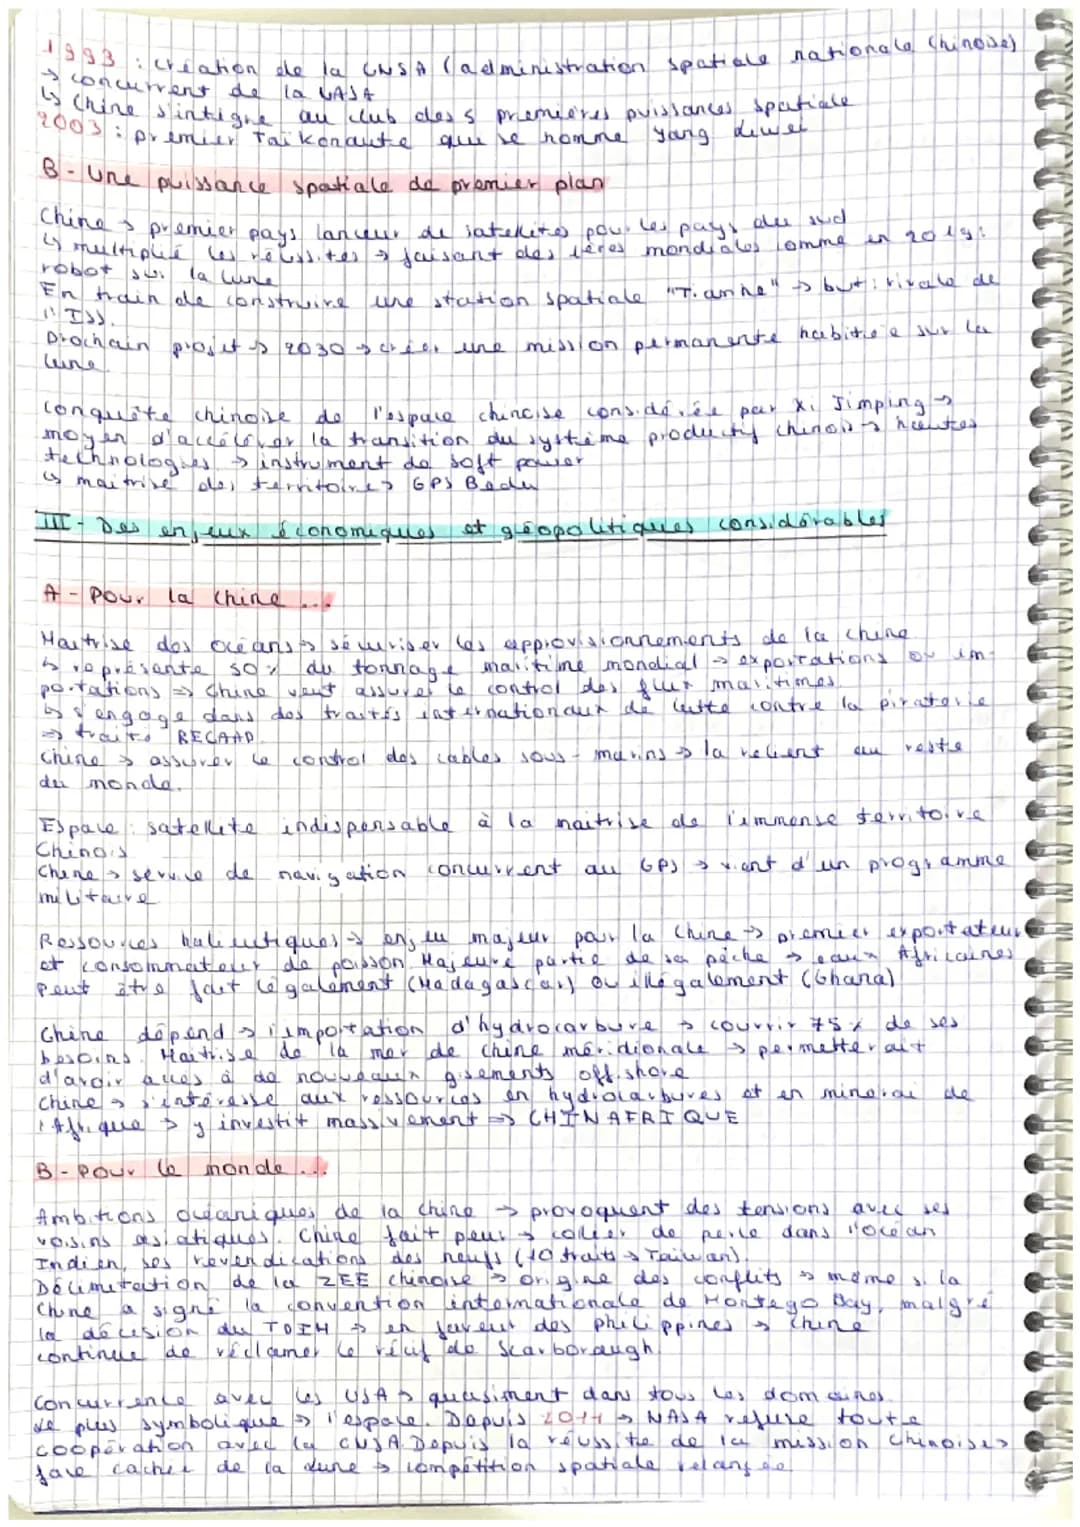 1993 : création de la CNSA (administration spatiale nationale Chinoise)
→ concurrent de la NASA
↳ Chine s'intègre au club des 5 premières puissances spatiale
2003 : premier Taïkonaute qui se nomme Yang Liwei
B - Une puissance spatiale de premier plan
Chine → premier pays lanceur de satellites pour les pays du sud
↳ multiplié les réussites → faisant des 1ères mondiales comme en 2019 :
robot sur la lune
En train de construire une station spatiale "Tianhe" → but : rivale de
l'ISS.
Prochain projet → 2030 → créer une mission permanente habitée sur la
lune
Conquête chinoise de l'espace chinoise considérée par Xi Jimping →
moyen d'accélérer la transition du système productif chinois → hautes
technologies → instrument de soft power
↳ maitrise des territoires GPS Bedu
III - Des enjeux économiques et géopolitiques considérables
A - Pour la Chine ...
Maitrise des océans → sécuriser les approvisionnements de la Chine
↳ représente 50% du tonnage maritime mondial → exportations ou im-
portations ⇒ Chine veut assurer le control des flux maritimes
↳ s'engage dans des traités internationaux de lutte contre la piraterie
⇒ traité RECAAP
Chine → assurer le control des cables sous-marins → la relient au reste
du monde.
Espace : satellite indispensable à la maitrise de l'immense territoire
Chinois
Chine → service de navigation concurrent au GPS → vient d'un programme
militaire
Ressources halieutiques → enjeu majeur pour la Chine → premier exportateur
et consommateur de poisson. Majeure partie de sa pêche → eaux Africaines
Peut être fait légalement (Madagascar) ou illégalement (Ghana)
Chine dépend → l'importation d'hydrocarbure → couvrir 75% de ses
besoins. Maitrise de la mer de Chine méridionale → permetterait
d'avoir accès à de nouveaux gisements offshore
Chine → s'intéresse aux ressources en hydrocarbures et en minerai de
l'Afrique → y investit massivement ⇒ CHINAFRIQUE
B - Pour le monde ...
Ambitions océaniques de la Chine → provoquent des tensions avec ses
voisins asiatiques. Chine fait peur → collier de perle dans l'océan
Indien, ses revendications des neufs (10 traits → Taiwan).
Délimitation de la ZEE chinoise → origine des conflits → même si la
Chine a signé la convention internationale de Montego Bay, malgré
la décision du TDIM → en faveur des philippines → Chine
continue de réclamer le récif de Scarborough.
Concurrence avec les USA → quasiment dans tous les domaines.
Le plus symbolique → l'espace. Depuis 2011 → NASA refuse toute
coopération avec la CNSA. Depuis la réussite de la mission Chinoises
face cachée de la Lune → compétition spatiale relancée